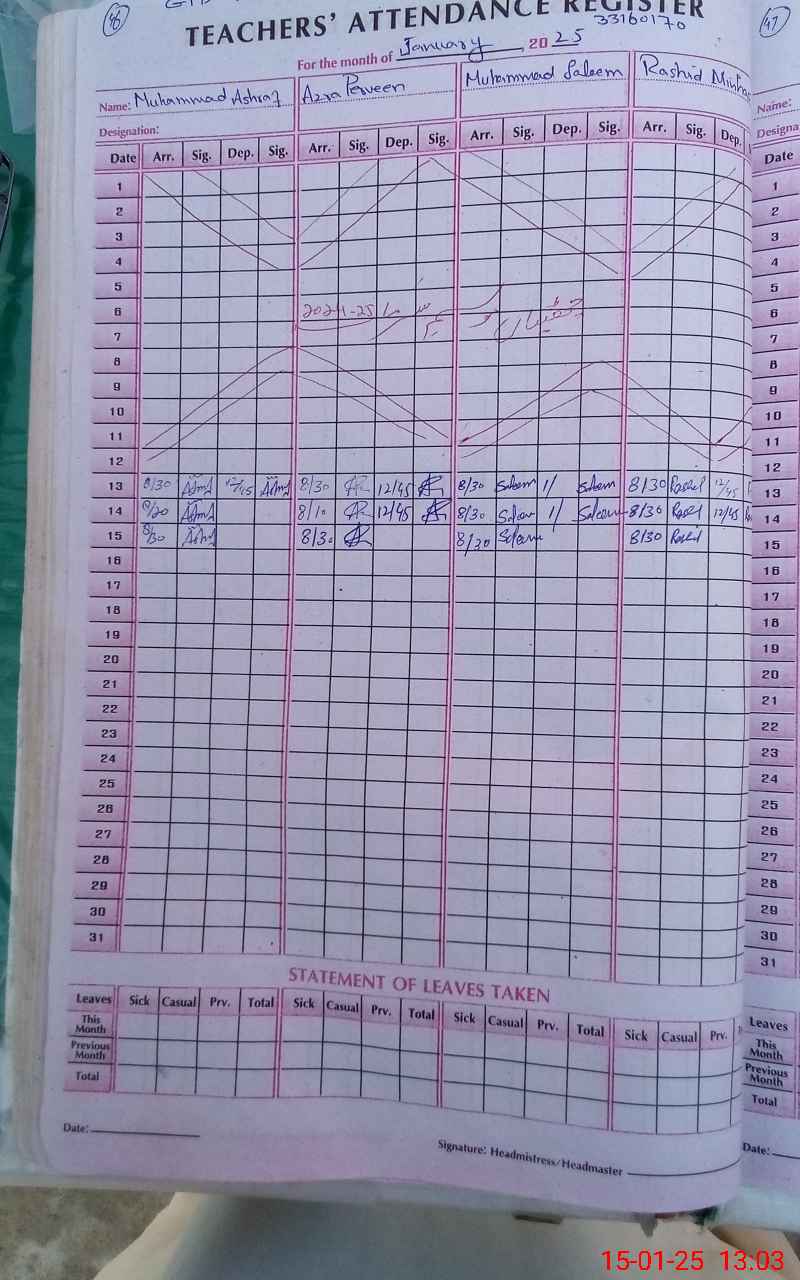 46
TEACHERS' ATTENDANCE REGISTER
33160170
For the month of January 2025
Name: Muhammad Ashraf Azra Perveen Muhammad Saleem Rashid
Designation:
Date Arr. Sig. Dep. Sig. Arr. Sig. Dep. Sig. Arr. Sig. Dep. Sig. Arr. Sig. Dep.
1
2
3
4
5
6
7
8
9
10
11
12
13 8/30 12/45 8/30 12/45 8/30 Saleem 11 Saleem 8/30 Rashid 12/45
14 8/20 8/10 12/45 8/30 Saleem 11 Saleem 8/30 Rashid 12/45
15 8/30 8/30 8/30 Saleem 8/30 Rashid
16
17
18
19
20
21
22
23
24
25
26
27
28
29
30
31
STATEMENT OF LEAVES TAKEN
Leaves Sick Casual Prv. Total Sick Casual Prv. Total Sick Casual Prv. Total Sick Casual Prv.
This Month
Previous Month
Total
Date:
Signature: Headmistress/Headmaster
47
Name:
Date
1
2
3
4
5
6
7
8
9
10
11
12
13
14
15
16
17
18
19
20
21
22
23
24
25
26
27
28
29
30
31
Leaves
This Month
Previous Month
Total
Date:
15-01-25 13:03